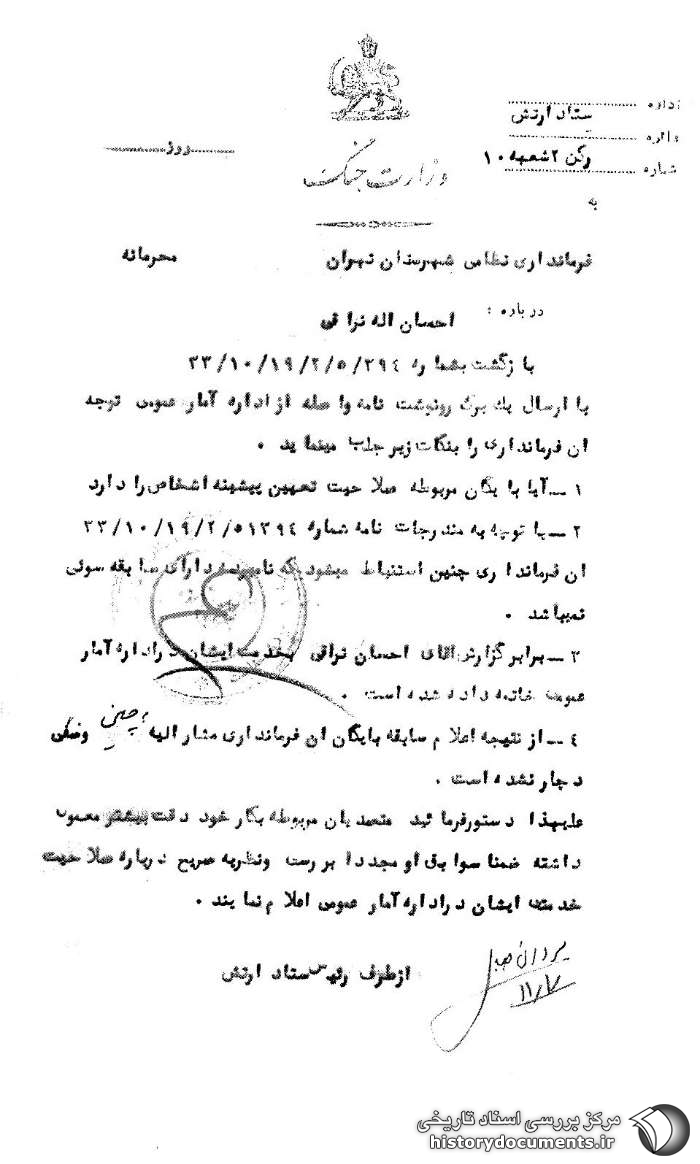 اداره ستاد ارتش
دائره
شماره رکن ۲ شعبه ۱۰
روز
وزارت جنگ
به
فرمانداری نظامی شهرستان تهران محرمانه
درباره : احسان اله نراقی
بازگشت بشماره ۳۳/۱۰/۱۹/۲/۵/۲۹۴
با ارسال یك برگ رونوشت نامه واصله از اداره آمار عمومی توجه
ان فرمانداری را بنکات زیر جلب مینماید .
۱ ــ آیا بایگان مربوطه صلاحیت تعیین پیشینه اشخاص را دارد
۲ ــ با توجه به مندرجات نامه شماره ۳۳/۱۰/۱۹/۲/۵۱۲۹٤
ان فرمانداری چنین استنباط میشود که نامبرده دارای سابقه سوئی
نمیباشد .
۳ ــ برابر گزارش اقای احسان نراقی بخدمت ایشان در اداره آمار
عمومی خاتمه داده شده است .
٤ ــ از نتیجه اعلام سابقه بایگان ان فرمانداری مشار الیه بچنین وضعی
دچار شده است .
علیهذا دستور فرمائید متصدیان مربوطه بکار خود دقت بیشتر معمول
داشته ضمنا سوابق او مجددا بررسی ونظریه صریح درباره صلاحیت
خدمتی ایشان در اداره آمار عمومی اعلام نمایند .
از طرف رئیس ستاد ارتش
۱۱/۷
مرکز بررسی اسناد تاریخی
historydocuments.ir